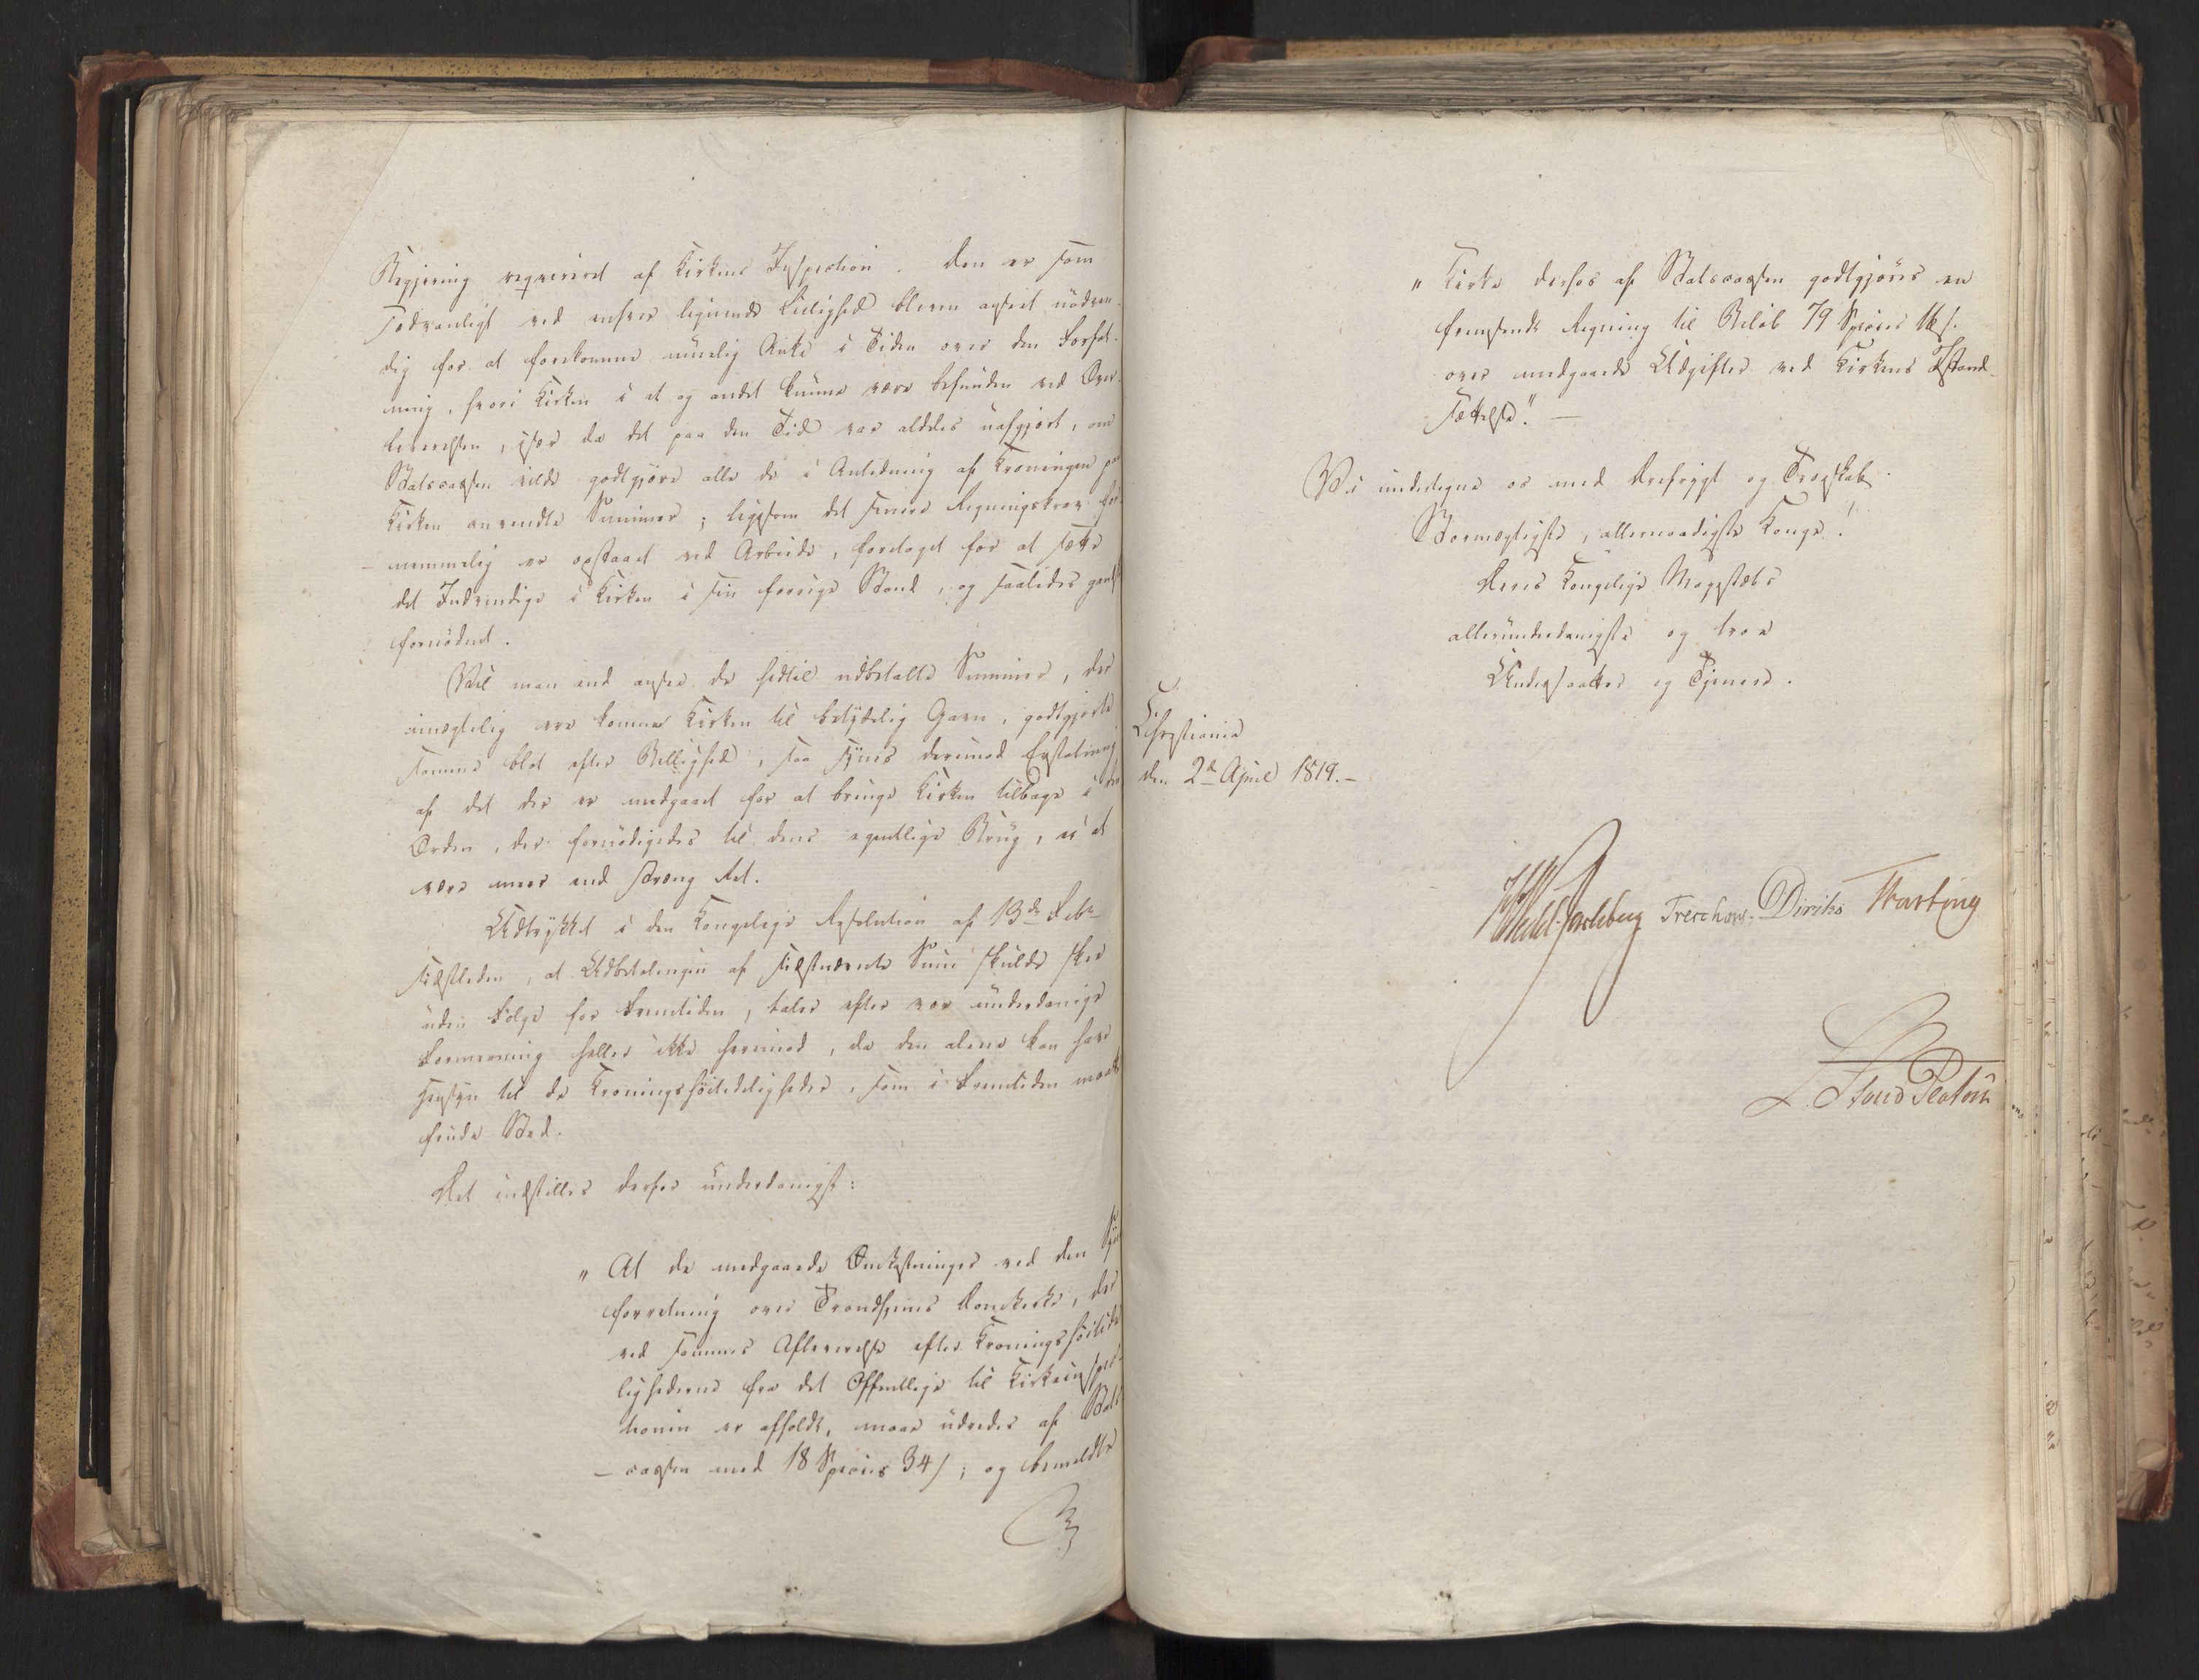 Regjering reqvireret af Kirkens Inspection. Den er som
sædvanligt ved enhver lignende Leilighed bleven anseet nödven-
dig for at forekomme muelig Anke i Tiden over den Forfat-
ning, hvori Kirken i et og andet kunne være befunden ved Over-
leverelsen, især da det paa den Tid var aldeles uafgjort, om
Statscassen vilde godtgjöre alle de i Anledning af Kroningen paa
Kirken anvendte Summer; ligesom det senere Regningskrav for-
nemmelig er opstaaet ved Arbeide, foretaget for at sætte
det Indvendige i Kirken i sin forrige Stand, og saaledes gandske
fornödent.
Vil man end ansee de hidtil udbetalte Summer, der
unægtelig ere komne Kirken til betydelig Gavn, godtgjorte
samme blot efter Billighed, saa synes derimod Erstatning
af det der er medgaaet for at bringe Kirken tilbage i den
Orden, der fornödigedes til dens egentlige Brug, ei at
være meer end streng Ret.
Udtrykket i den Kongelige Resolution af 13de Febr
sidstleden, at Udbetalingen af sidstnævnte Sum skulde skee
uden Fölge for Fremtiden, taler efter vor underdanige
Formening heller ikke herimod, da den alene kan have
Hensyn til de Kroningshöitideligheder, som i Fremtiden maatte
finde Sted.
Det indstilles derfor underdanigst:
„ At de medgaaede Omkostninger ved den Syns-
forretning over Trondhjems Domkirke, der
ved sammes Afleverelse efter Kroningshöitide-
lighederne fra det Offentlige til Kirkeinspec-
tionen er afholdt, maae udredes af Stats-
cassen med 18 Species 34 s; og bemeldte
„ Kirke derhos af Statscassen godtgjöres en
fremsendt Regning til Belöb 79 Species 16 s.
over medgaaede Udgifter ved Kirkens Istand-
sættelse." —
Vi undertegne os med Ærefrygt og Troskab.
Stormægtigste, allernaadigste Konge!
Deres Kongelige Majestæts
allerunderdanigste og troe
Undersaatter og Tjenere.
Christiania
den 2d April 1819. —
Wedel Jarlsberg Treschow. Diriks Krarting
L. Stoud Platou